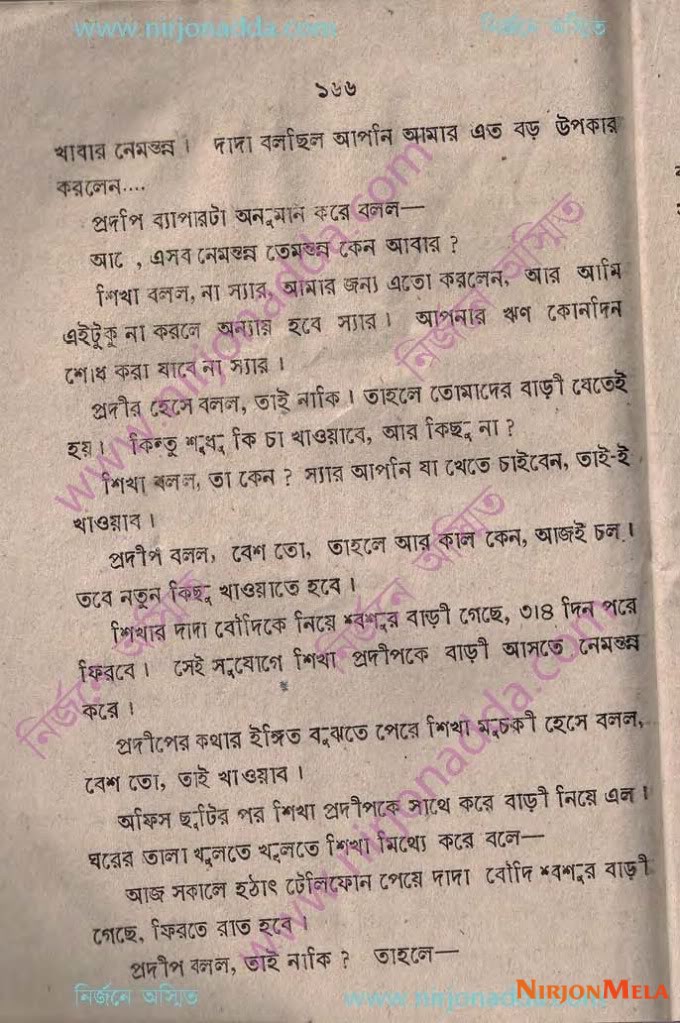 www.nirjonadda.com নির্জনে অস্মিত
১৬৬
খাবার নেমন্তন্ন। দাদা বলছিল আপনি আমার এত বড় উপকার
করলেন....
প্রদীপ ব্যাপারটা অনুমান করে বলল—
আ , এসব নেমন্তন্ন তেমন্তন্ন কেন আবার ?
শিখা বলল, না স্যার, আমার জন্য এতো করলেন, আর আমি
এইটুকু না করলে অন্যায় হবে স্যার। আপনার ঋণ কোনদিন
শোধ করা যাবে না স্যার।
প্রদীর হেসে বলল, তাই নাকি। তাহলে তোমাদের বাড়ী যেতেই
হয়। কিন্তু শুধু কি চা খাওয়াবে, আর কিছু না ?
শিখা বলল, তা কেন ? স্যার আপনি যা খেতে চাইবেন, তাই-ই
খাওয়াব।
প্রদীপ বলল, বেশ তো, তাহলে আর কাল কেন, আজই চল।
তবে নতুন কিছু খাওয়াতে হবে।
শিখার দাদা বৌদিকে নিয়ে শ্বশুর বাড়ী গেছে, ৩।৪ দিন পরে
ফিরবে। সেই সুযোগে শিখা প্রদীপকে বাড়ী আসতে নেমন্তন্ন
করে।
প্রদীপের কথার ইঙ্গিত বুঝতে পেরে শিখা মুচকী হেসে বলল,
বেশ তো, তাই খাওয়াব।
অফিস ছুটির পর শিখা প্রদীপকে সাথে করে বাড়ী নিয়ে এল।
ঘরের তালা খুলতে খুলতে শিখা মিথ্যে করে বলে—
আজ সকালে হঠাৎ টেলিফোন পেয়ে দাদা বৌদি শ্বশুর বাড়ী
গেছে, ফিরতে রাত হবে।
প্রদীপ বলল, তাই নাকি ? তাহলে—
নির্জনে অস্মিত www.nirjonadda.com
NIRJONMELA
www.nirjonadda.com
নির্জনে অস্মিত
নির্জনে অস্মিত
নির্জনে অস্মিত
www.nirjonadda.com